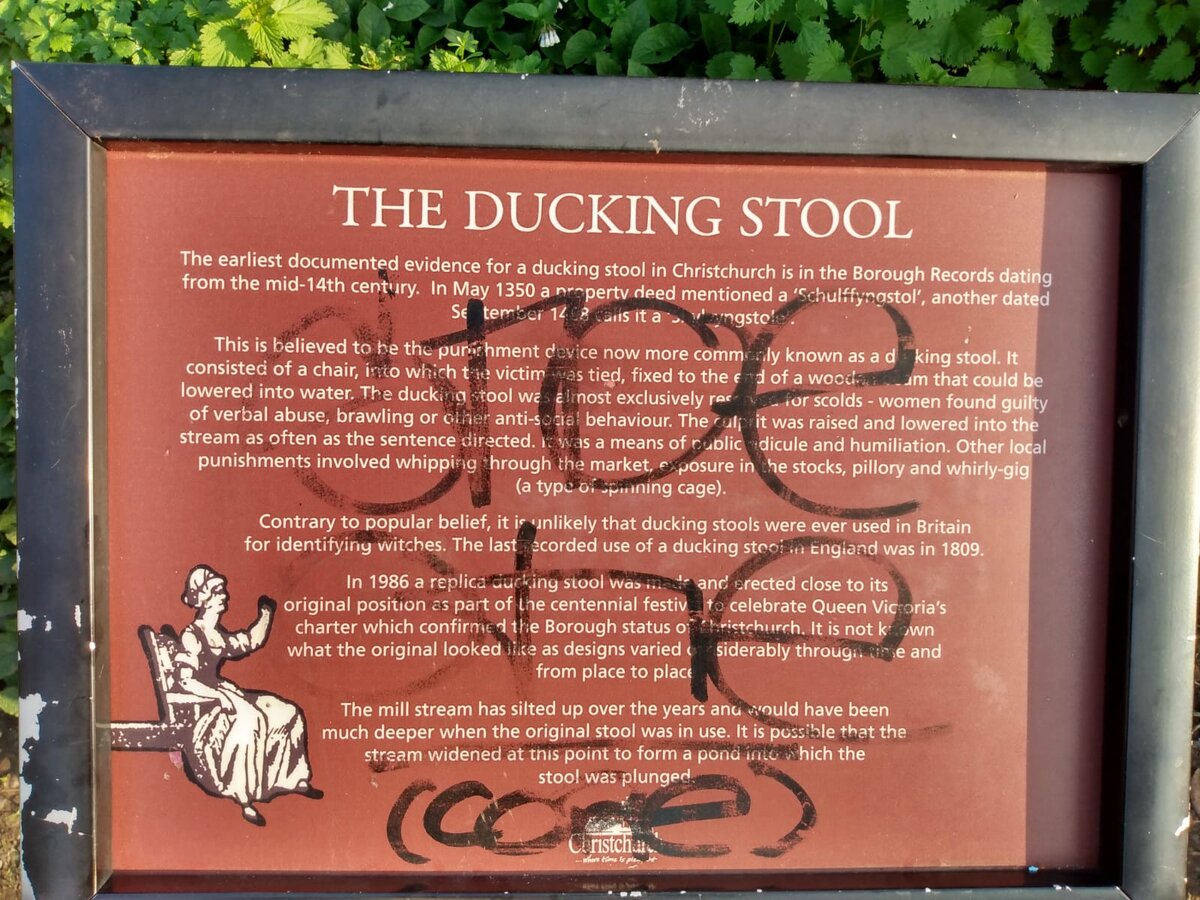 THE DUCKING STOOL
The earliest documented evidence for a ducking stool in Christchurch is in the Borough Records dating
from the mid-14th century. In May 1350 a property deed mentioned a 'Schulffyngstol', another dated
September calls it a
This is believed to be the punishment device now more commonly known as a ducking stool. It
consisted of a chair, into which the victim was tied, fixed to the end of a wooden beam that could be
lowered into water. The ducking stool was almost exclusively reserved for scolds - women found guilty
of verbal abuse, brawling or other anti-social behaviour. The culprit was raised and lowered into the
stream as often as the sentence directed. It was a means of public ridicule and humiliation. Other local
punishments involved whipping through the market, exposure in the stocks, pillory and whirly-gig
(a type of spinning cage).
Contrary to popular belief, it is unlikely that ducking stools were ever used in Britain
for identifying witches. The last recorded use of a ducking stool in England was in 1809.
In 1986 a replica ducking stool was made and erected close to its
original position as part of the centennial festival to celebrate Queen Victoria's
charter which confirmed the Borough status of Christchurch. It is not known
what the original looked like as designs varied considerably through time and
from place to place.
The mill stream has silted up over the years and would have been
much deeper when the original stool was in use. It is possible that the
stream widened at this point to form a pond into which the
stool was plunged.
Christchurch
...where time is pleasant